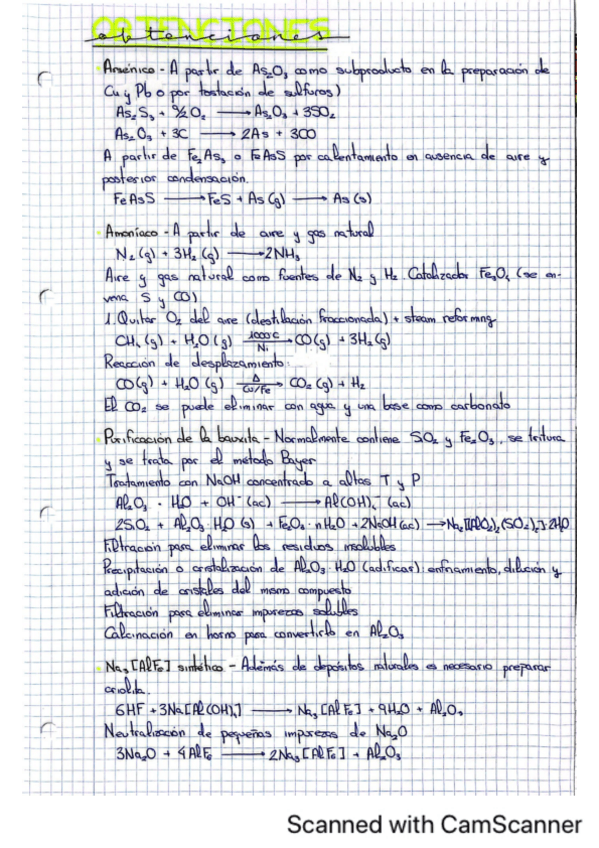 OBTENCIONES
obtenciones
Arsénico - A partir de As₂O₃ como subproducto en la preparación de
Cu y Pb o por tostación de sulfuros)
As₂S₃ + 9/2 O₂ → As₂O₃ + 3SO₂
As₂O₃ + 3C → 2As + 3CO
A partir de Fe₂As₃ o FeAsS por calentamiento en ausencia de aire y
posterior condensación.
FeAsS → FeS + As(g) → As(s)
Amoniaco - A partir de aire y gas natural
N₂(g) + 3H₂(g) → 2NH₃
Aire y gas natural como fuentes de N₂ y H₂. Catalizador Fe₃O₄ (se en-
vena S y CO)
1. Quitar O₂ del aire (destilación fraccionada) + steam reforming
CH₄(g) + H₂O(g) 1000°C Ni → CO(g) + 3H₂(g)
Reacción de desplazamiento:
CO(g) + H₂O(g) Δ Cu/Fe → CO₂(g) + H₂
El CO₂ se puede eliminar con agua y una base como carbonato
Purificación de la bauxita - Normalmente contiene SiO₂ y Fe₂O₃, se tritura
y se trata por el método Bayer
Tratamiento con NaOH concentrado a altas T y P
Al₂O₃ · H₂O + OH⁻(ac) → Al(OH)₄⁻(ac)
2SiO₂ + Al₂O₃·H₂O(s) + Fe₂O₃·nH₂O + 2NaOH(ac) → Na₂[(AlO₂)₂(SiO₂)₂]·2H₂O
Filtración para eliminar los residuos insolubles
Precipitación o cristalización de Al₂O₃·H₂O : enfriamiento, dilución y
adición de cristales del mismo compuesto
Filtración para eliminar impurezas solubles
Calcinación en horno para convertirlo en Al₂O₃
Na₃[AlF₆] sintético - Además de depósitos naturales es necesario preparar
criolita.
6HF + 3Na[Al(OH)₄] → Na₃[AlF₆] + 9H₂O + Al₂O₃
Neutralización de pequeñas impurezas de Na₂O
3Na₂O + 4AlF₃ → 2Na₃[AlF₆] + Al₂O₃
Scanned with CamScanner